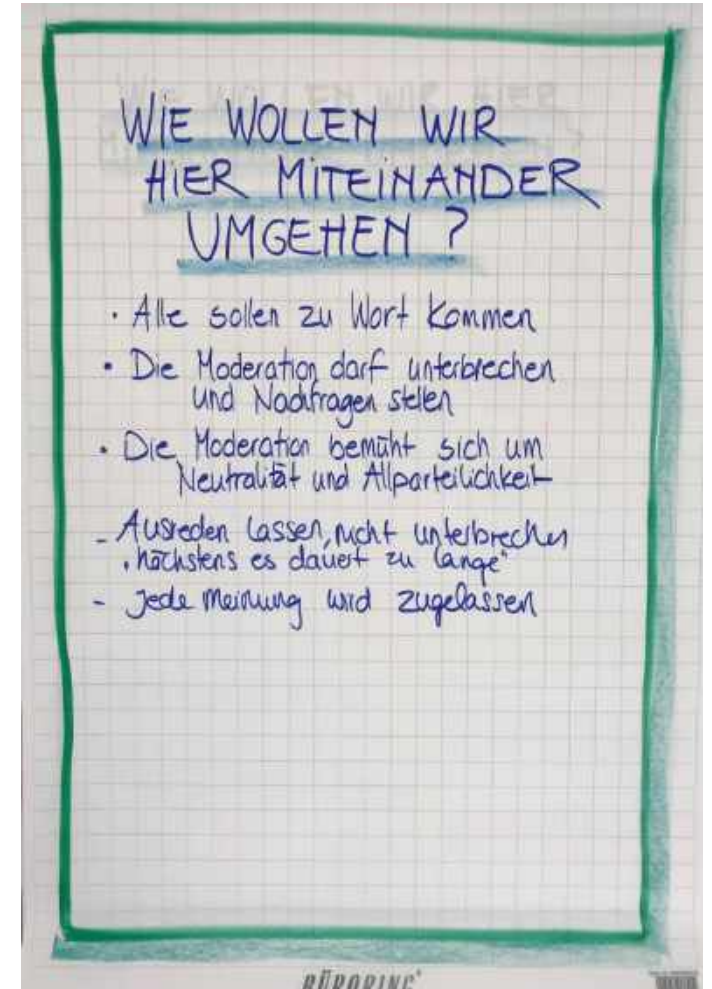 WIE WOLLEN WIR
HIER MITEINANDER
UMGEHEN ?
• Alle sollen zu Wort kommen
• Die Moderation darf unterbrechen
und Nachfragen stellen
• Die Moderation bemüht sich um
Neutralität und Allparteilichkeit
- Ausreden lassen, nicht unterbrechen
"höchstens es dauert zu lange"
- Jede Meinung wird zugelassen
BÜRORING